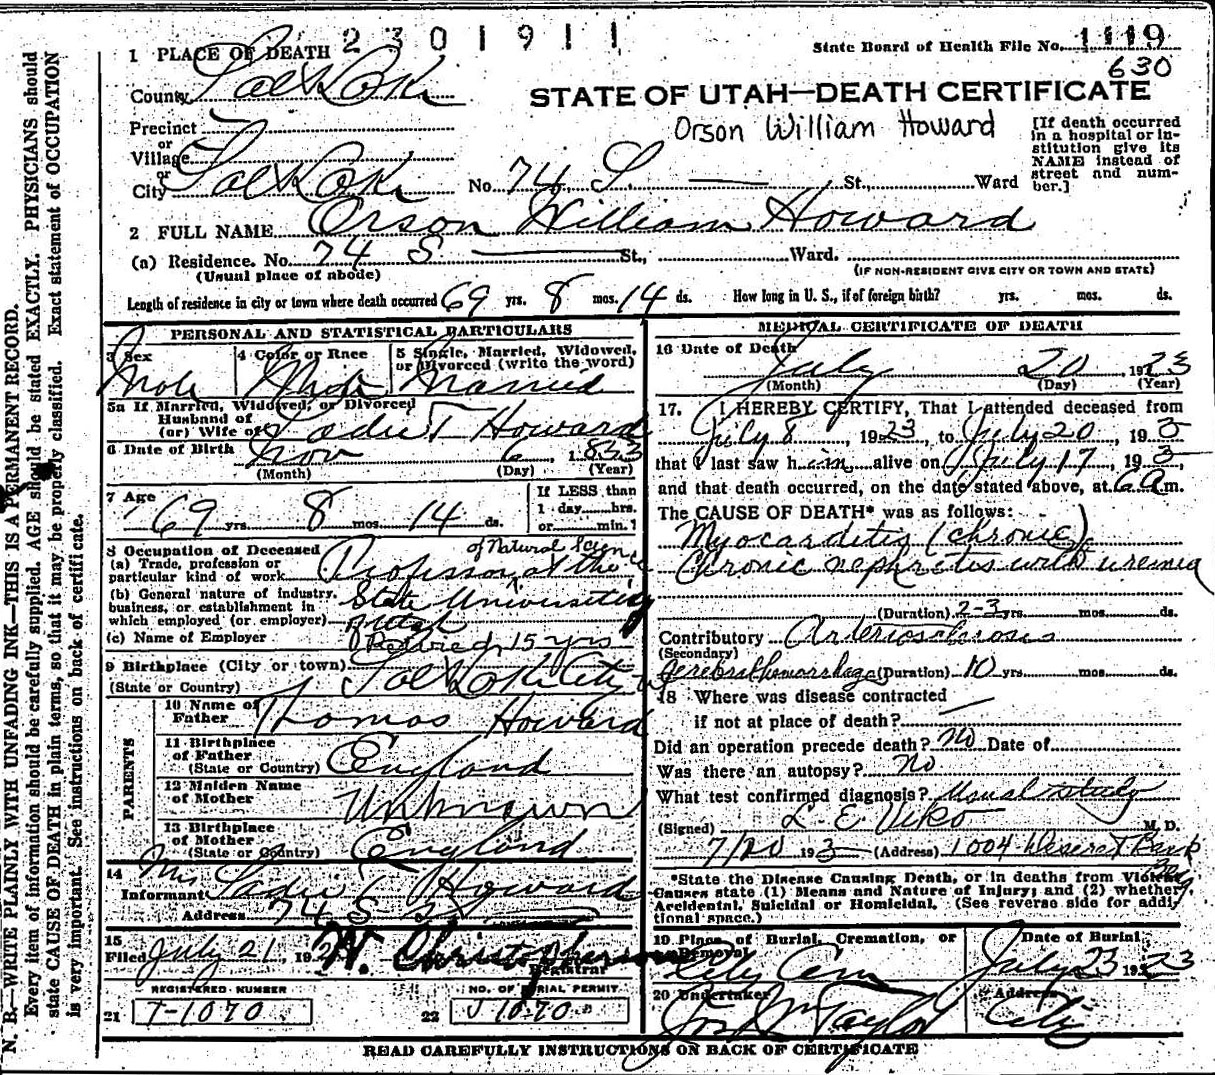 2301911
1 PLACE OF DEATH
State Board of Health File No. 1119
630
County Salt Lake
STATE OF UTAH—DEATH CERTIFICATE
Orson William Howard
Precinct
or
Village
or
City Salt Lake No. 74 S. — St., Ward
[If death occurred
in a hospital or in-
stitution give its
NAME instead of
street and num-
ber.]
2 FULL NAME Orson William Howard
(a) Residence. No. 74 S — St., Ward.
(Usual place of abode)
(IF NON-RESIDENT GIVE CITY OR TOWN AND STATE)
Length of residence in city or town where death occurred 69 yrs. 8 mos. 14 ds. How long in U. S., if of foreign birth? yrs. mos. ds.
PERSONAL AND STATISTICAL PARTICULARS
3 Sex
Male
4 Color or Race
White
5 Single, Married, Widowed,
or Divorced (write the word)
Married
5a If Married, Widowed, or Divorced
Husband of
(or) Wife of Sadie T Howard
6 Date of Birth Nov 6, 1853
(Month) (Day) (Year)
7 Age
69 yrs. 8 mos. 14 ds.
If LESS than
1 day hrs.
or min.?
8 Occupation of Deceased
(a) Trade, profession or
particular kind of work Professor of Natural Science at the
(b) General nature of industry,
business, or establishment in
which employed (or employer) State University
of Utah
(c) Name of Employer Retired 15 yrs
9 Birthplace (City or town) Salt Lake City
(State or Country)
PARENTS
10 Name of
Father Thomas Howard
11 Birthplace
of Father
(State or Country) England
12 Maiden Name
of Mother Unknown
13 Birthplace
of Mother
(State or Country) England
14
Informant Mrs Sadie T Howard
Address 74 S
15
Filed July 21, 192
Registrar
REGISTERED NUMBER
21 T-1070
NO. OF BURIAL PERMIT
22 J 1070
MEDICAL CERTIFICATE OF DEATH
16 Date of Death
July 20, 1923
(Month) (Day) (Year)
17. I HEREBY CERTIFY, That I attended deceased from
July 8, 1923, to July 20, 193
that I last saw him alive on July 17, 193,
and that death occurred, on the date stated above, at 6 a m.
The CAUSE OF DEATH* was as follows:
Myocarditis (chronic)
Chronic nephritis with uremia
(Duration) 2-3 yrs. mos. ds.
Contributory Arteriosclerosis
(Secondary)
Cerebral hemorrhage (Duration) 10 yrs. mos. ds.
18 Where was disease contracted
if not at place of death? —
Did an operation precede death? No Date of
Was there an autopsy? No
What test confirmed diagnosis? Usual study
(Signed) L. E. Viko M. D.
7/20 193 (Address) 1004 Deseret Bank
Bldg
*State the Disease Causing Death, or in deaths from Violent
Causes state (1) Means and Nature of Injury; and (2) whether
Accidental, Suicidal or Homicidal. (See reverse side for addi-
tional space.)
19 Place of Burial, Cremation, or
Removal
City Cem
Date of Burial
July 23 1923
20 Undertaker
Jos Wm Taylor
Address
City
READ CAREFULLY INSTRUCTIONS ON BACK OF CERTIFICATE
N. B.—WRITE PLAINLY WITH UNFADING INK—THIS IS A PERMANENT RECORD.
Every item of information should be carefully supplied. AGE should be stated EXACTLY. PHYSICIANS should
state CAUSE OF DEATH in plain terms, so that it may be properly classified. Exact statement of OCCUPATION
is very important. See instructions on back of certificate.